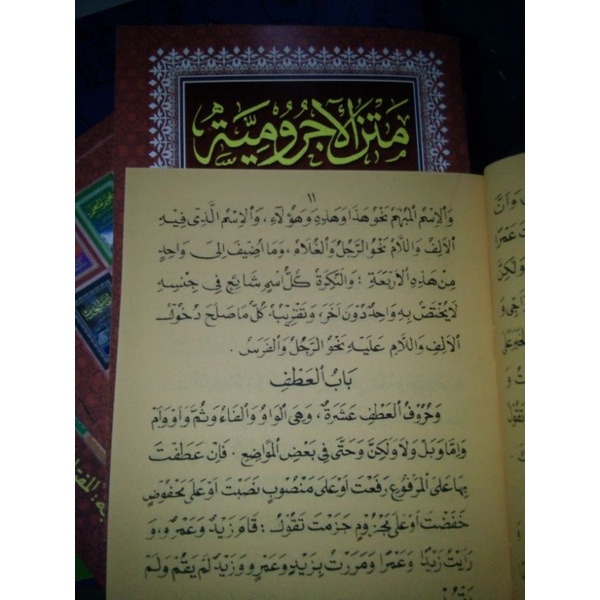 متن الآجرومية
١١
وَالْاِسْمُ الْمُبْهَمُ نَحْوُ هَذَا وَهَذِهِ وَهَؤُلَاءِ، وَالْاِسْمُ الَّذِى فِيْهِ
الْاَلِفُ وَاللَّامُ نَحْوُ الرَّجُلُ وَالْغُلَامُ، وَمَا اُضِيْفَ اِلَى وَاحِدٍ
مِنْ هَذِهِ الْاَرْبَعَةِ ؛ وَالنَّكِرَةُ كُلُّ اسْمٍ شَائِعٍ فِى جِنْسِهِ
لَا يَخْتَصُّ بِهِ وَاحِدٌ دُوْنَ آخَرَ، وَتَقْرِيْبُهُ كُلُّ مَا صَلَحَ دُخُوْلُ
الْاَلِفِ وَاللَّامِ عَلَيْهِ نَحْوُ الرَّجُلُ وَالْفَرَسُ .
بَابُ الْعَطْفِ
وَحُرُوْفُ الْعَطْفِ عَشَرَةٌ، وَهِيَ الْوَاوُ وَالْفَاءُ وَثُمَّ وَاَوْ وَاَمْ
وَاِمَّا وَبَلْ وَلَا وَلَكِنْ وَحَتَّى فِى بَعْضِ الْمَوَاضِعِ . فَاِنْ عَطَفْتَ
بِهَا عَلَى الْمَرْفُوْعِ رَفَعْتَ اَوْ عَلَى مَنْصُوْبٍ نَصَبْتَ اَوْ عَلَى مَخْفُوْضٍ
خَفَضْتَ اَوْ عَلَى مَجْزُوْمٍ جَزَمْتَ تَقُوْلُ : قَامَ زَيْدٌ وَعَمْرٌو، وَ
رَاَيْتُ زَيْدًا وَعَمْرًا وَمَرَرْتُ بِزَيْدٍ وَعَمْرٍو وَزَيْدٌ لَمْ يَقُمْ وَلَمْ